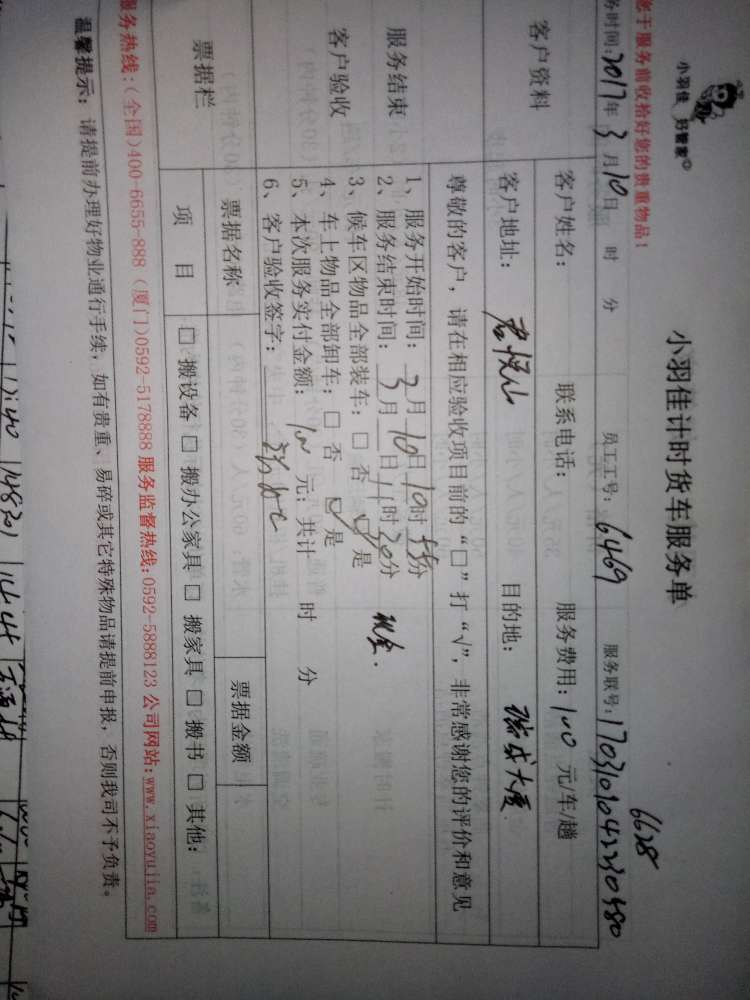 您于服务前收拾好您的贵重物品!
小羽佳 好管家
小羽佳计时货车服务单
6628
务时间:2017年3月10日 时 分 员工工号:6469 服务联号:
客户资料
客户姓名: 联系电话: 服务费用:100 元/车/趟
客户地址:君悦山 目的地:瑞成大厦
服务结束
客户验收
尊敬的客户,请在相应验收项目前的“□”打“√”,非常感谢您的评价和意见
1、服务开始时间:3月10日10时45分
2、服务结束时间:3月10日11时20分 现金.
3、候车区物品全部装车:□ 否 ☑ 是
4、车上物品全部卸车:□ 否 ☑ 是
5、本次服务实付金额:100 元;共计 时 分
6、客户验收签字:
票据栏
票据名称 票据金额
项 目 □ 搬设备 □ 搬办公家具 □ 搬家具 □ 搬书 □ 其他:
服务热线:(全国)400-6655-888 (厦门)0592-5178888 服务监督热线:0592-5888123 公司网站:www.xiaoyujia.com
温馨提示:请提前办理好物业通行手续,如有贵重、易碎或其它特殊物品请提前申报,否则我司不予负责。